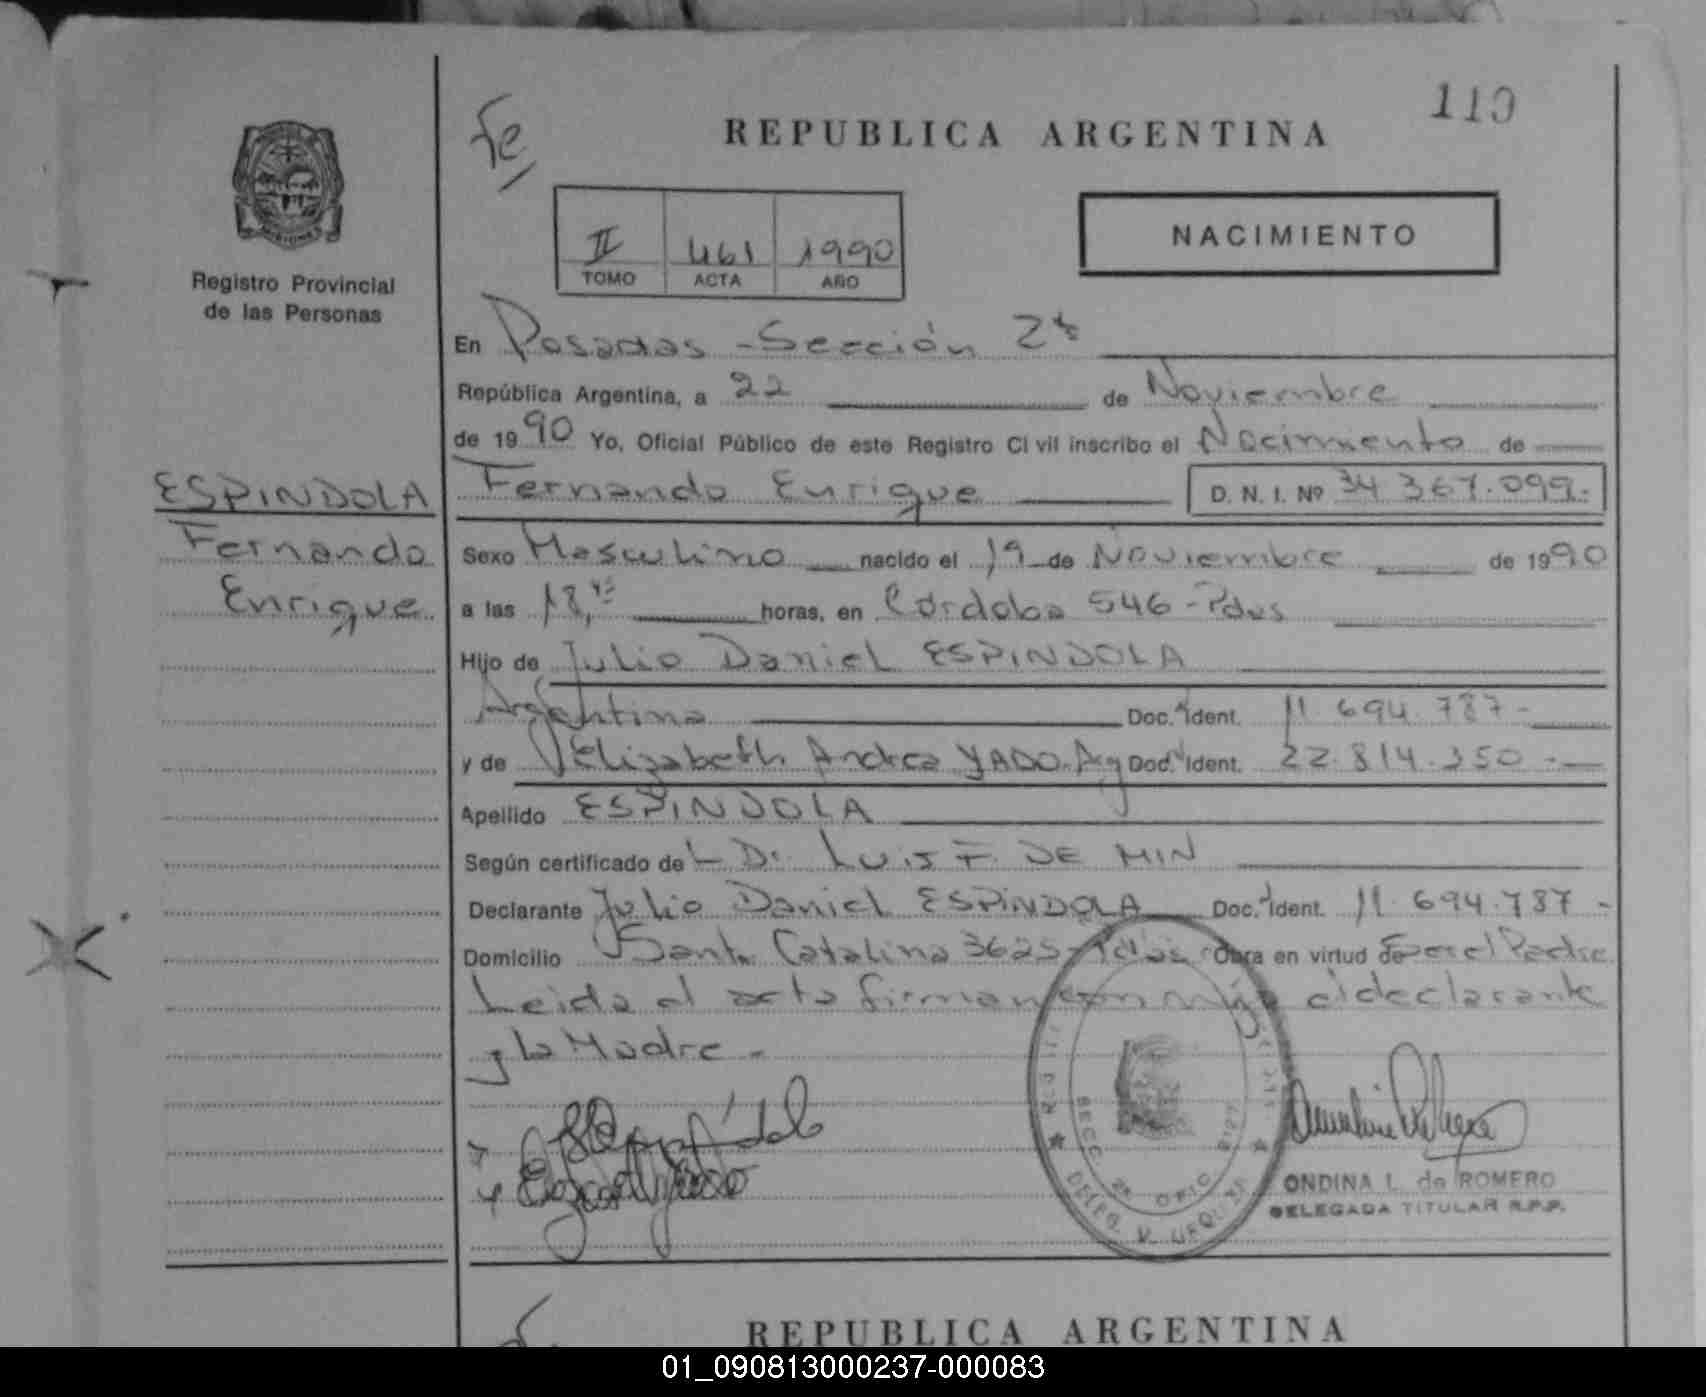 110
Fe/
REPUBLICA ARGENTINA
MISIONES
Registro Provincial
de las Personas
II 461 1990
TOMO ACTA AÑO
NACIMIENTO
En Posadas - Sección 2ª
República Argentina, a 22 de Noviembre
de 1990 Yo, Oficial Público de este Registro Civil inscribo el Nacimiento de
ESPINDOLA
Fernando
Enrique
Fernando Enrique D. N. I. Nº 34 367.099.-
Sexo Masculino nacido el 19 de Noviembre de 1990
a las 18, horas, en Córdoba 546 - Pdas
Hijo de Julio Daniel ESPINDOLA
Argentino Doc. Ident. 11.694.787-
y de Elizabeth Andrea YADO. Arg Doc. Ident. 22.814.350.-
Apellido ESPINDOLA
Según certificado de L Dr LUIS F. DE MIN
Declarante Julio Daniel ESPINDOLA Doc. Ident. 11.694.787-
Domicilio Santa Catalina 3625 - Pdas Obra en virtud de Ser el Padre
Leida el acta firman conmigo el declarante
y la Madre.-
SECC. 2ª OFIC.
DELEG. V. URQUIZA
ONDINA L. de ROMERO
DELEGADA TITULAR R.P.P.
REPUBLICA ARGENTINA
01_090813000237-000083